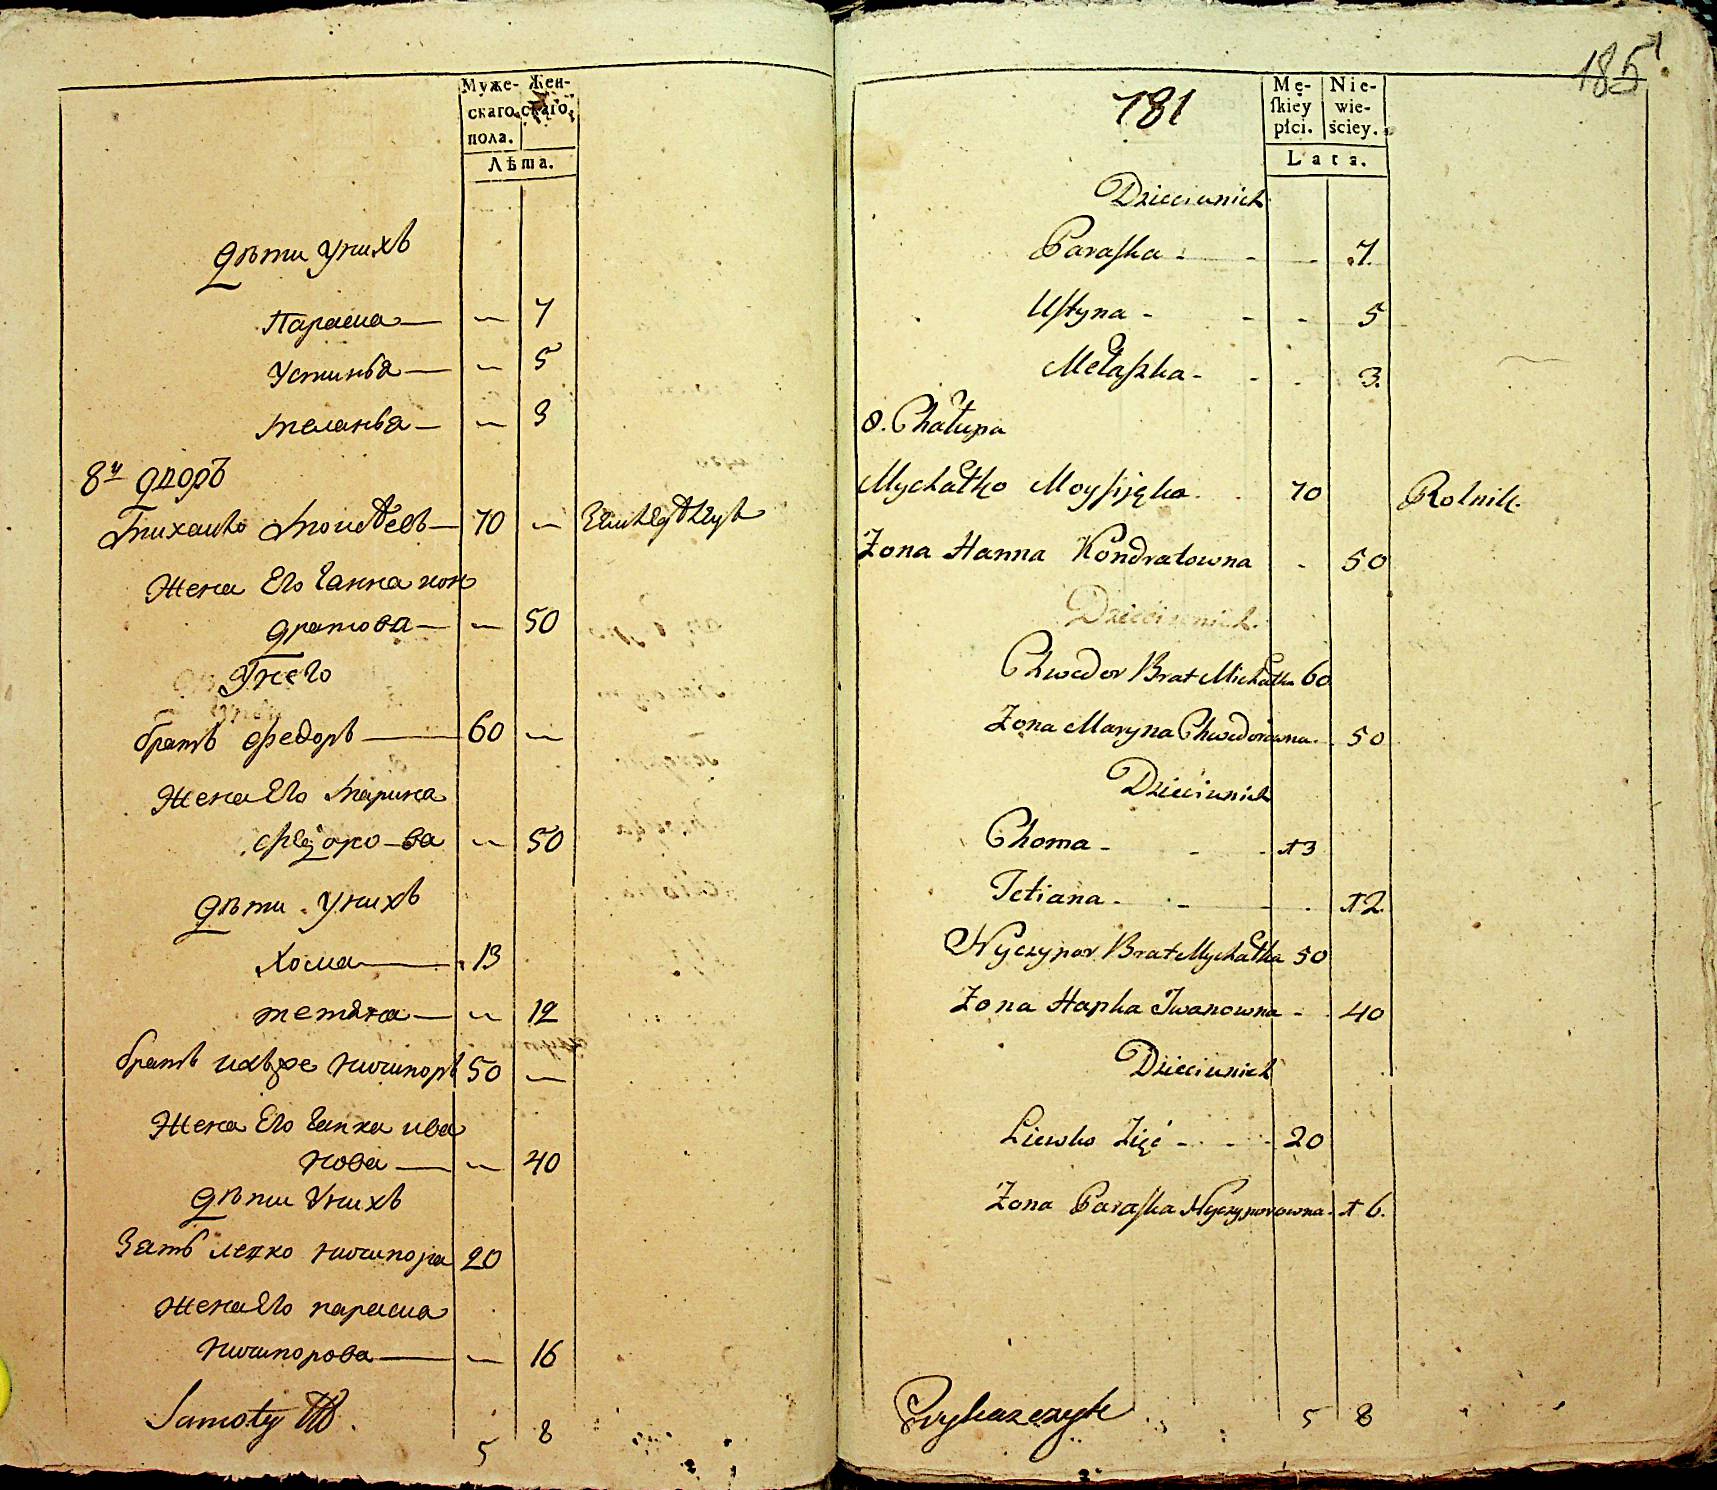 Муже- Жен-
скаго скаго
пола.
Лѣта.
дѣти Унихъ
Параска — — 7
Устинья — — 5
Меланья — — 3
8й дворъ
Михалко Мойсѣевъ — 70 —
Жена Его Ганна кон
дратова — — 50
Унего
братъ Федоръ — 60 —
Жена Его Марина
Федоро-ва — 50
дѣти Унихъ
Хома — 13
тетяна — — 12
братъ ихъже Ничипоръ 50 —
Жена Его Гапка ива
нова — — 40
дѣти Унихъ
Зять левко ничипора 20
Жена Его параска
Ничипорова — — 16
Samoty
5 8
185
181
Mę- Nie-
ſkiey wie-
płci. ściey.
Lata.
Dzieciunich
Paraſka - - - 7.
Uſtyna - - - 5
Mełaſzka - - - 3.
8. Chałupa
Mychałko Moyſijęka. . 70 Rolnik.
Żona Hanna Kondratowna - 50
Dzieciunich.
Chwedor Brat Michałka 60
Żona Maryna Chwedorowna. . 50
Dzieciunich
Choma - - - 13
Tetiana - - - . 12.
Nyczypor Brat Mychałka 50
Żona Hapka Iwanowna - . 40
Dzieciunich
Liewko Zięć - - - 20
Żona Paraſka Nyczyporowna. 16.
5 8